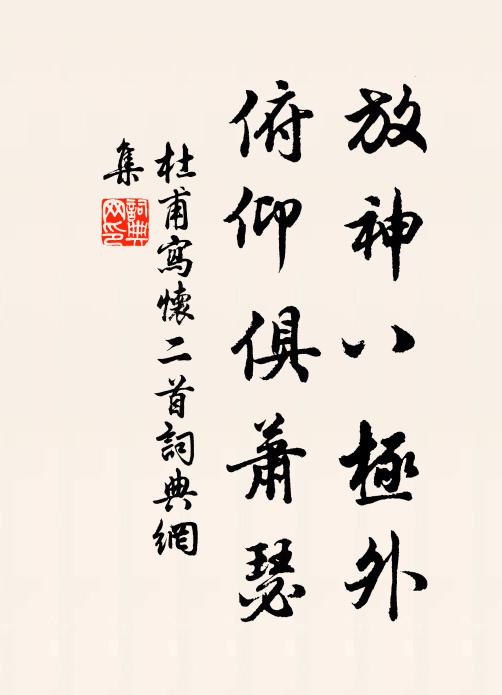 放神八極外
俯仰俱蕭瑟
杜甫寫懷二首詞典網
集
詞典網印